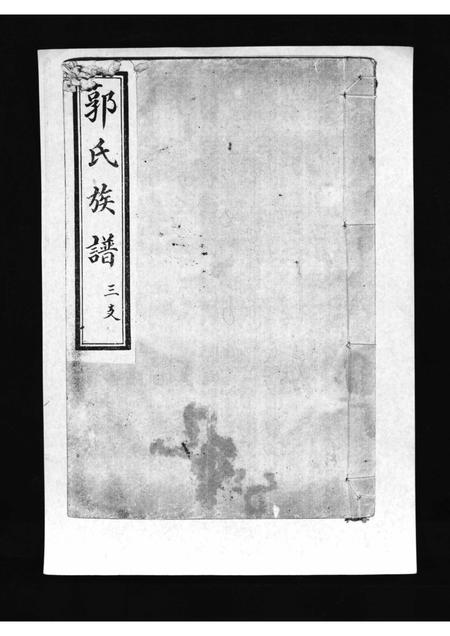 郭氏族譜 三支